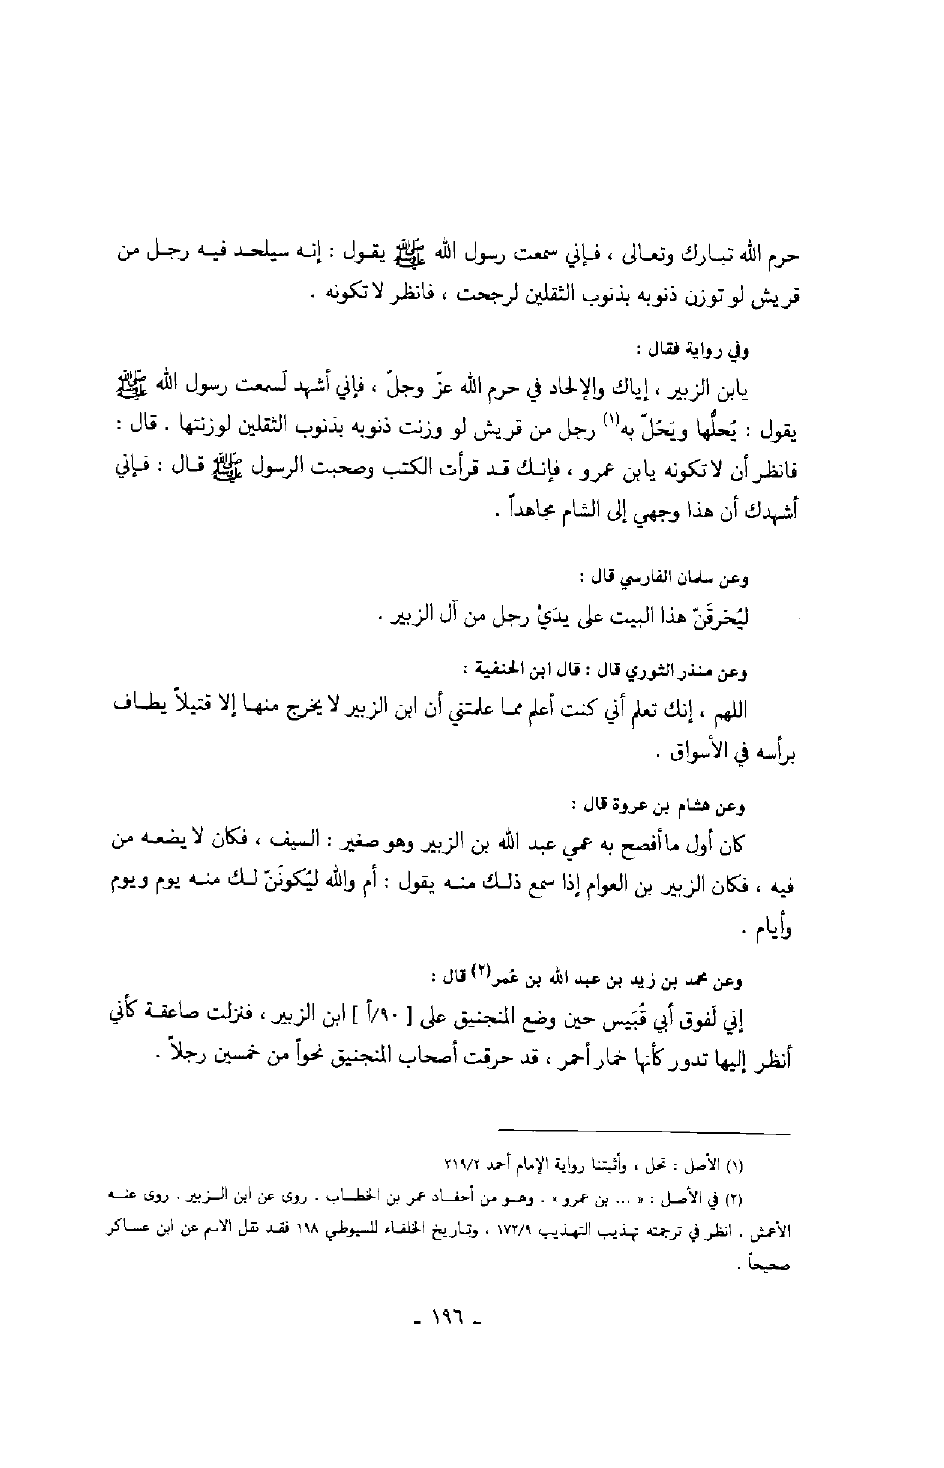 حرم الله تبارك وتعالى ، فإني سمعت رسول الله ﷺ يقول : إنه سيلحد فيه رجل من
قريش لو توزن ذنوبه بذنوب الثقلين لرجحت ، فانظر لا تكونه .
وفي رواية فقال :
يابن الزبير ، إياك والإلحاد في حرم الله عزّ وجلّ ، فإني أشهد لَسمعت رسول الله ﷺ
يقول : يُحلُّها ويَحُلّ به(١) رجل من قريش لو وزنت ذنوبه بذنوب الثقلين لوزنتها . قال :
فانظر أن لا تكونه يابن عمرو ، فإنك قد قرأت الكتب وصحبت الرسول ﷺ قال : فإني
أشهدك أن هذا وجهي إلى الشام مجاهداً .
وعن سلمان الفارسي قال :
ليُحَرقَنّ هذا البيت على يدَيْ رجل من آل الزبير .
وعن منذر الثوري قال : قال ابن الحنفية :
اللهم ، إنك تعلم أني كنت أعلم مما علمتني أن ابن الزبير لا يخرج منها إلا قتيلاً يطاف
برأسه في الأسواق .
وعن هشام بن عروة قال :
كان أول ماأفصح به عمي عبد الله بن الزبير وهو صغير : السيف ، فكان لا يضعه من
فيه ، فكان الزبير بن العوام إذا سمع ذلك منه يقول : أم والله ليُكونَنّ لك منه يوم ويوم
وأيام .
وعن محمد بن زيد بن عبد الله بن عُمر(٢) قال :
إني لَفوق أبي قُبَيس حين وضع المنجنيق على [ ٩٠/أ ] ابن الزبير ، فنزلت صاعقة كأني
أنظر إليها تدور كأنها خمار أحمر ، قد حرقت أصحاب المنجنيق نحواً من خمسين رجلاً .
(١) الأصل : تحل ، وأثبتنا رواية الإمام أحمد ٢١٩/٢
(٢) في الأصل : « ... بن عمرو » . وهو من أحفاد عمر بن الخطاب . روى عن ابن الزبير . روى عنه
الأعمش . انظر في ترجمته تهذيب التهذيب ١٧٢/٩ ، وتاريخ الخلفاء للسيوطي ١٩٨ فقد نقل الاسم عن ابن عساكر
صحيحاً .
- ١٩٦ -